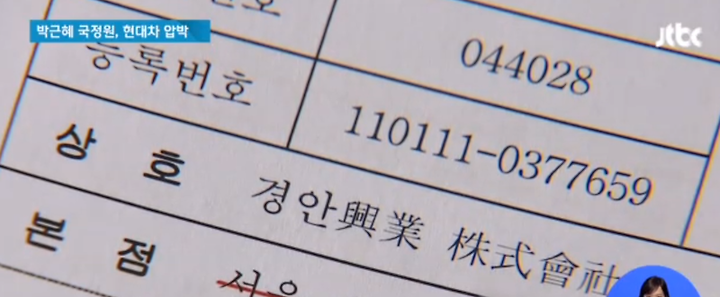 박근혜 국정원, 현대차 압박
jtbc
044028
등록번호
110111-0377659
상 호
경안興業 株式會社
본 점
서울